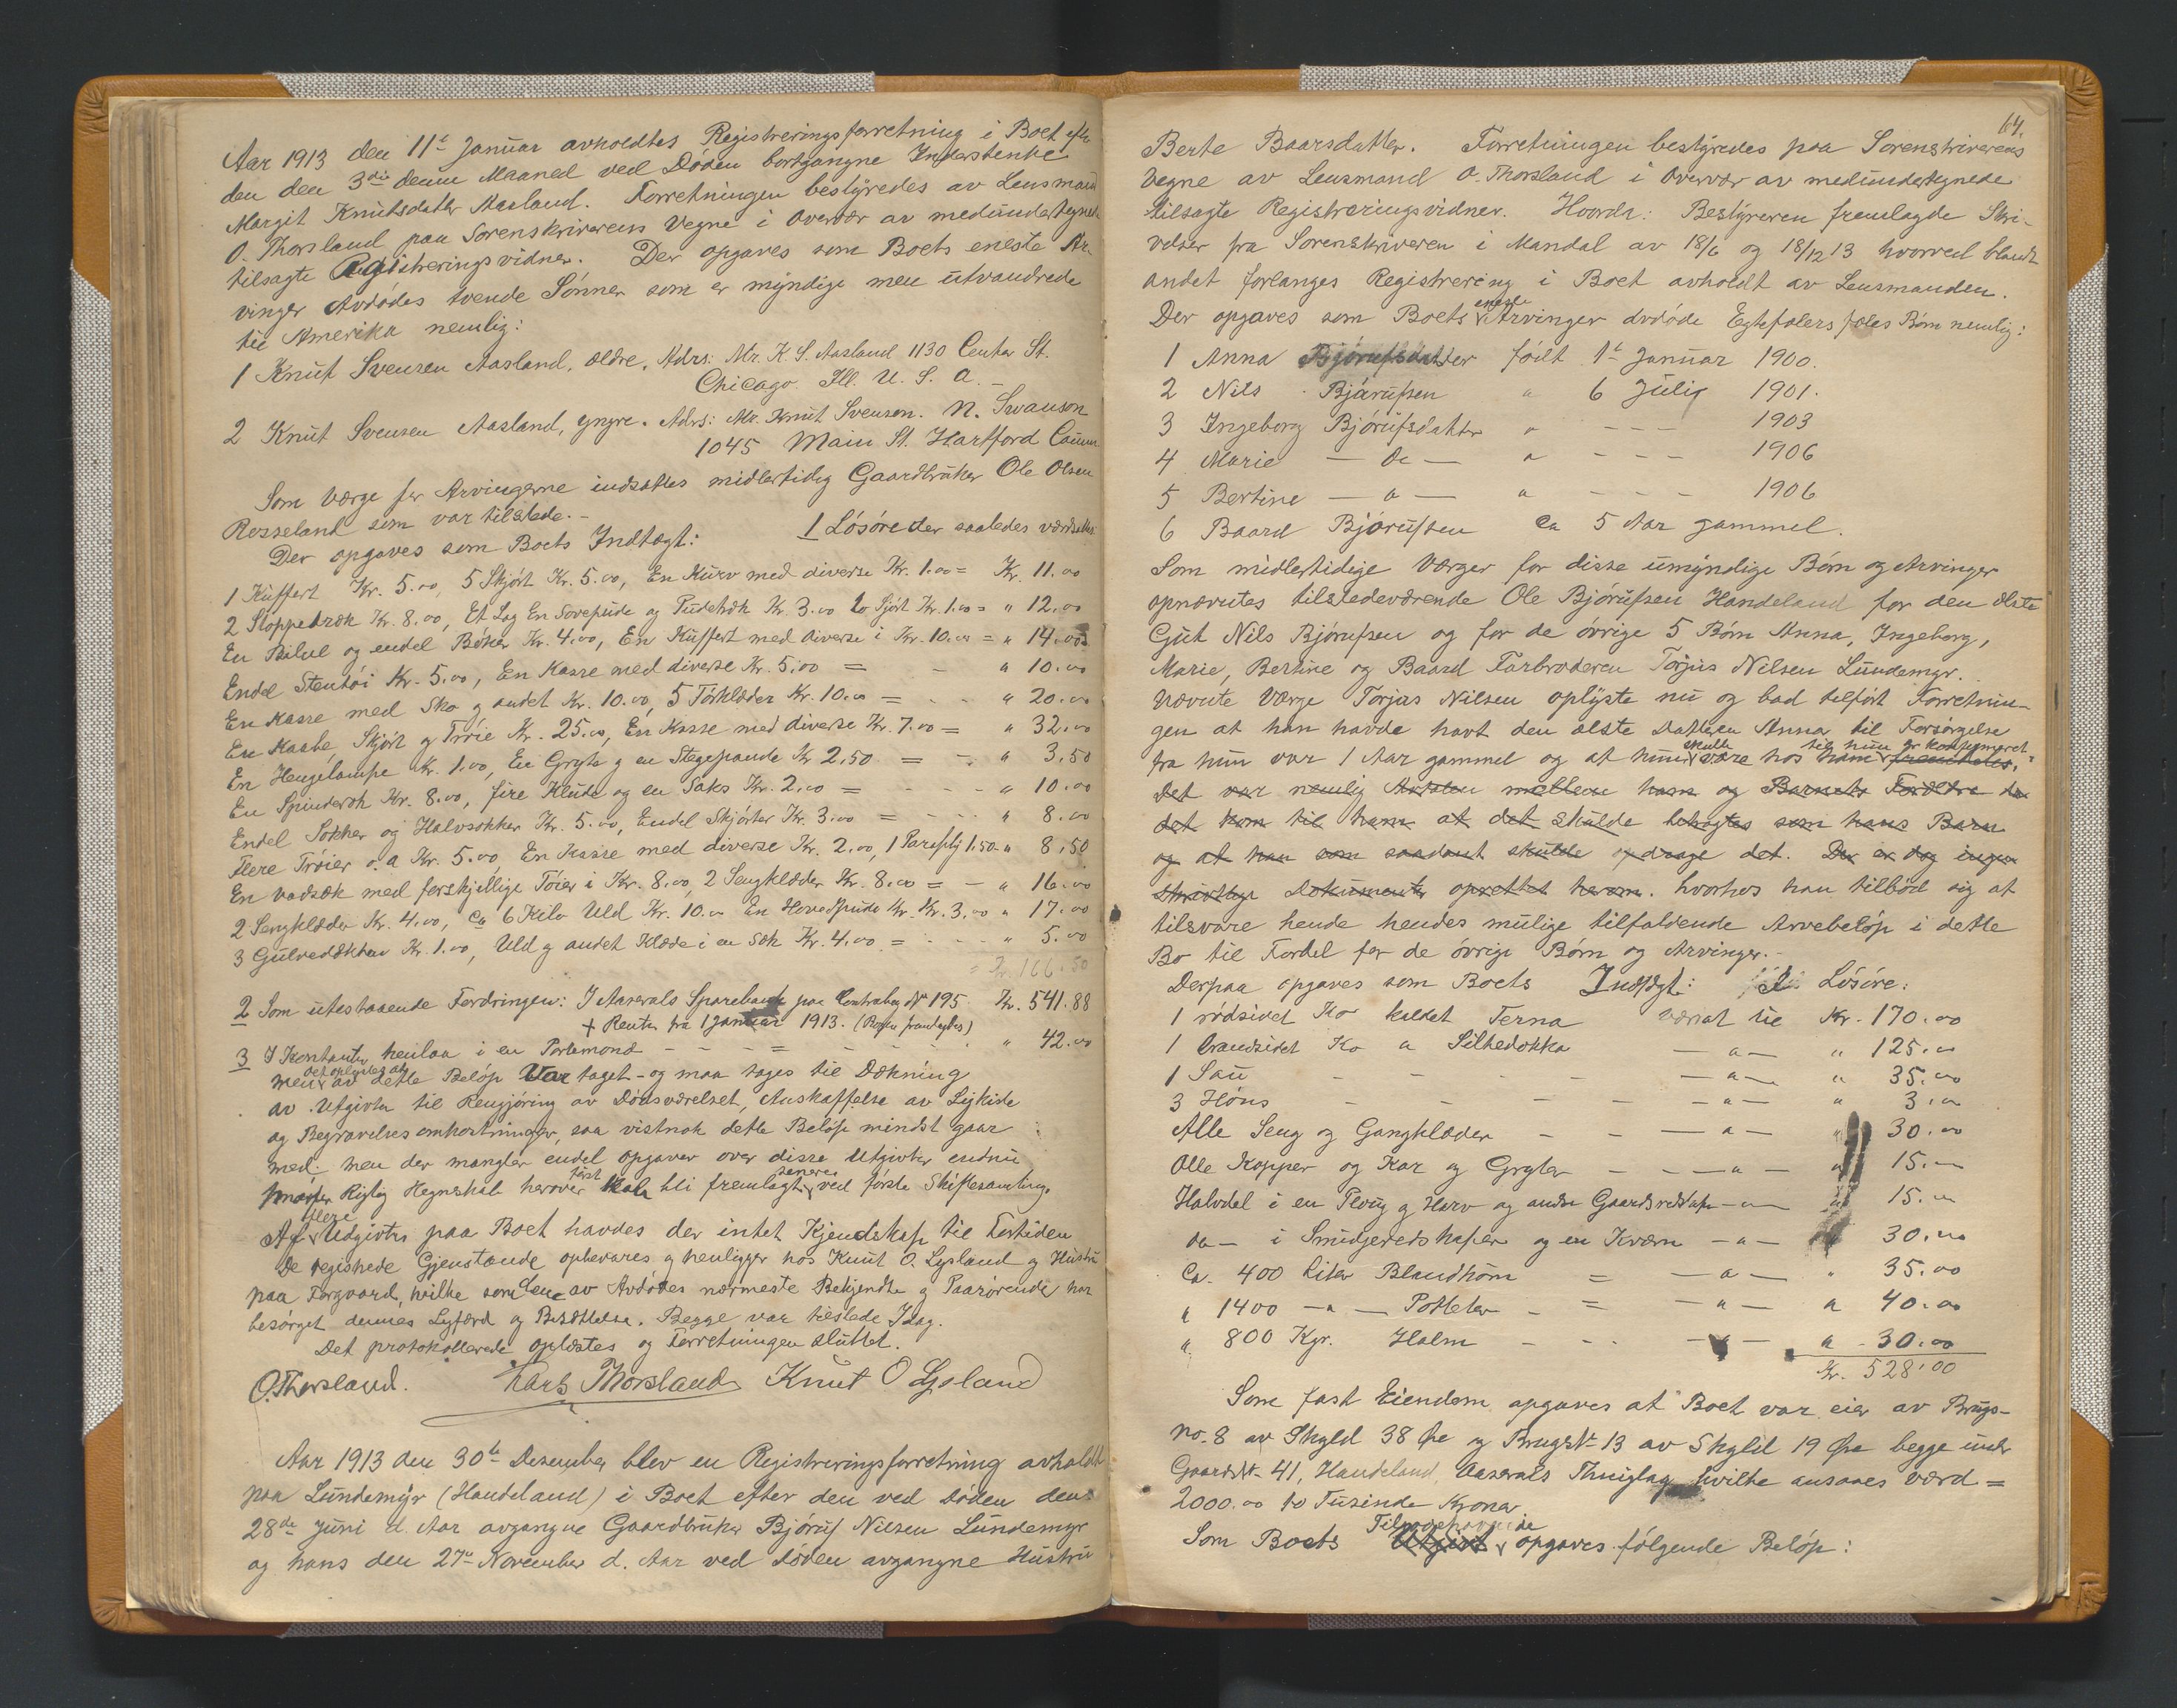 Aar 1913 den 11te Januar avholdtes Registreringsforretning i Boet efter
den den 3die denne Maaned ved Døden bortgangne Inderstenke
Margit Knutsdatter Aasland. Forretningen bestyredes av Lensmand
O. Thorsland paa Sorenskriverens Vegne i Overvær av medundertegnede
tilsagte Registreringsvidner. Der opgaves som Boets eneste Ar-
vinger Avdødes tvende Sønner som er myndige men utvandrede
til Amerika nemlig:
1 Knut Svensen Aasland, ældre, Adrs: Mr. K. S. Aasland 1130 Center St.
Chicago. Ill. U. S. A. -
2 Knut Svensen Aasland, yngre. Adrs: Mr. Knut Svensen. N. Swanson
1045 Main St. Hartford Conn
Som Værge for Arvingerne indsattes midlertidig Gaardbruker Ole Olsen
Rosseland som var tilstede. -
Der opgaves som Boets Indtægt: 1 Løsøre der saaledes værdsattes
1 Kuffert Kr. 5.00, 5 Skjørt Kr. 5.00, En Kurv med diverse Kr. 1.00 = Kr. 11.00
2 Stoppetræk Kr. 8.00, Et Lag En Sovepude og Pudetræk Kr. 3.00 to Skjørt Kr. 1.00 = " 12.00
En Bibel og endel Bøker Kr. 4.00, En Kuffert med diverse i Kr. 10.00 = " 14.00
Endel Stentøi Kr. 5.00, En Kasse med diverse Kr. 5.00 = - " 10.00
En Kasse med Sko og andet Kr. 10.00, 5 Tørklæder Kr. 10.00 = - - " 20.00
En Kaabe, Skjørt og Trøie Kr. 25.00, En Kasse med diverse Kr. 7.00 = " 32.00
En Hengelampe Kr. 1.00, En Gryte og en Stegepande Kr 2,50 = - " 3,50
En Spinderok Kr. 8.00, fire Klude og en Saks Kr. 2.00 = - - - " 10.00
Endel Sokker og Halvsokker Kr. 5.00, Endel Skjorter Kr. 3.00 = - - - " 8.00
Flere Trøier o. a Kr. 5.00, En Kasse med diverse Kr. 2.00, 1 Paraply 1.50 = " 8,50
En vadsæk med forskjellige Tøier i Kr. 8.00, 2 Sengklæder Kr. 8.00 = - " 16.00
2 Sengklæder Kr. 4.00, ca 6 Kilo Uld Kr. 10.00 En Hovedpude Kr. 3.00 " 17.00
3 Gulvedækken Kr. 1.00, Uld og andet Klæde i en Sæk Kr. 4.00 = - - - " 5.00
= Kr. 166.50
2 Som utestaaende Fordringer: I Aaserals Sparebank paa Contrabog No 195 Kr. 541.88
+ Renter fra 1 Januar 1913. (Bogen fremlagdes)
3 I Kontanter henlaa i en Portemoné - - - = - - - " 42.00
men det oplystes at av dette Beløp Var taget - og maa tages til Dækning
av Utgivter til Rengjøring av Dødsværelset, Anskaffelse av Ligkiste
og Begravelsesomkostninger, saa vistnok dette Beløp mindst gaar
med: men der mangler endel opgaver over disse Utgivter endnu
hvorfor Rigtig Regnskab herover først kan bli fremlagt senere ved første Skiftesamling.
Af flere Udgivter paa Boet havdes der intet Kjendskap til Fortiden
De registrede Gjenstande opbevares og henligger hos Knut O. Lysland og Hustru
paa Forgaard, hvilke som en av Avdødes nærmeste Bekjendte og Paarørende har
besørget dennes Ligfærd og Bisættelse. Begge var tilstede Idag.
Det protokollerede oplæstes og Forretningen sluttet.
O. Thorsland. Lars Thorsland Knut O Lysland
Aar 1913 den 30te Desember blev en Registreringsforretning avholdt
paa Lundemyr (Handeland) i Boet efter den ved Døden den
28de Juni d. Aar avgangne Gaardbruker Bjørnuf Nilsen Lundemyr
og hans den 27de November d. Aar ved Døden avgangne Hustru
64.
Berte Baarsdatter. Forretningen bestyredes paa Sorenskriverens
Vegne av Lensmand O. Thorsland i Overvær av medundertegnede
tilsagte Registreringsvidner. Hvorda: Bestyreren fremlagde Skri-
velser fra Sorenskriveren i Mandal av 18/6 og 18/12 13 hvorved blandt
andet forlanges Registrering i Boet avholdt av Lensmanden.
Der opgaves som Boets eneste Arvinger avdøde Egtefolers fæles Børn nemlig:
1 Anna Bjørnufsdatter født 1te Januar 1900.
2 Nils Bjørnufsen " 6 Julij 1901.
3 Ingeborg Bjørnufsdatter " - - - 1903
4 Marie - do - " - - - 1906
5 Bertine - " - " - - - 1906
6 Baard Bjørnufsen ca 5 Aar gammel.
Som midlertidige Værger for disse umyndige Børn og Arvinger
opnævntes tilstedeværende Ole Bjørnufsen Handeland for den ælste
Gut Nils Bjørnufsen og for de øvrige 5 Børn Anna, Ingeborg,
Marie, Bertine og Baard Farbroderen Torjus Nilsen Lundemyr.
Nævnte Værge Torjus Nilsen oplyste nu og bad tilført Forretnin-
gen at han havde havt den ælste Datteren Anna til Forsørgelse
fra hun var 1 Aar gammel og at hun skulle være hos ham til hun er konfirmeret. fremdeles.
Det var nemlig Avtalen mellem ham og Barnets Forældre da
det kom til ham at det skulde betragtes som hans Barn
og at han som saadant skulde opdrage det. Der er dog ingen
skriftlige Dokumenter oprettet herom. hvorhos han tilbød sig at
tilsvare hende hendes mulige tilfaldende Arvebeløp i dette
Bo til Fordel for de øvrige Børn og Arvinger. -
Derpaa opgaves som Boets Indtægt: Løsøre:
1 rødsidet Ko kaldet Terna værdt til Kr. 170.00
1 brandsidet Ko " Silkedokka - " - " 125.00
1 Sau - - - - - " - " 35.00
3 Høns - - - - - " - " 3.00
Alle Seng og Gangklæder - - - " - " 30.00
Alle Kopper og Kar og Gryter - - - " - " 15.00
Halvdel i en Ploug og Harv og andre Gaardsredskaper - " - " 15.00
do - i Smidjeredskaper og en Kværn - " - 30.00
Ca. 400 Liter Blandkorn = - " - " 35.00
" 1400 - " - Poteter - = - " - " 40.00
" 800 Kgr. Halm - - - - " - " 30.00
Kr. 528.00
Som fast Eiendom opgaves at Boet var eier av Brugs-
No. 8 av Skyld 38 Øre og Brugs No 13 av Skyld 19 Øre begge under
Gaards No 41, Handeland Aaserals Thinglag hvilke ansaaes værd =
2000.00 to Tusinde Kroner
Som Boets Utgivt Tilsvarende opgaves følgende Beløp: